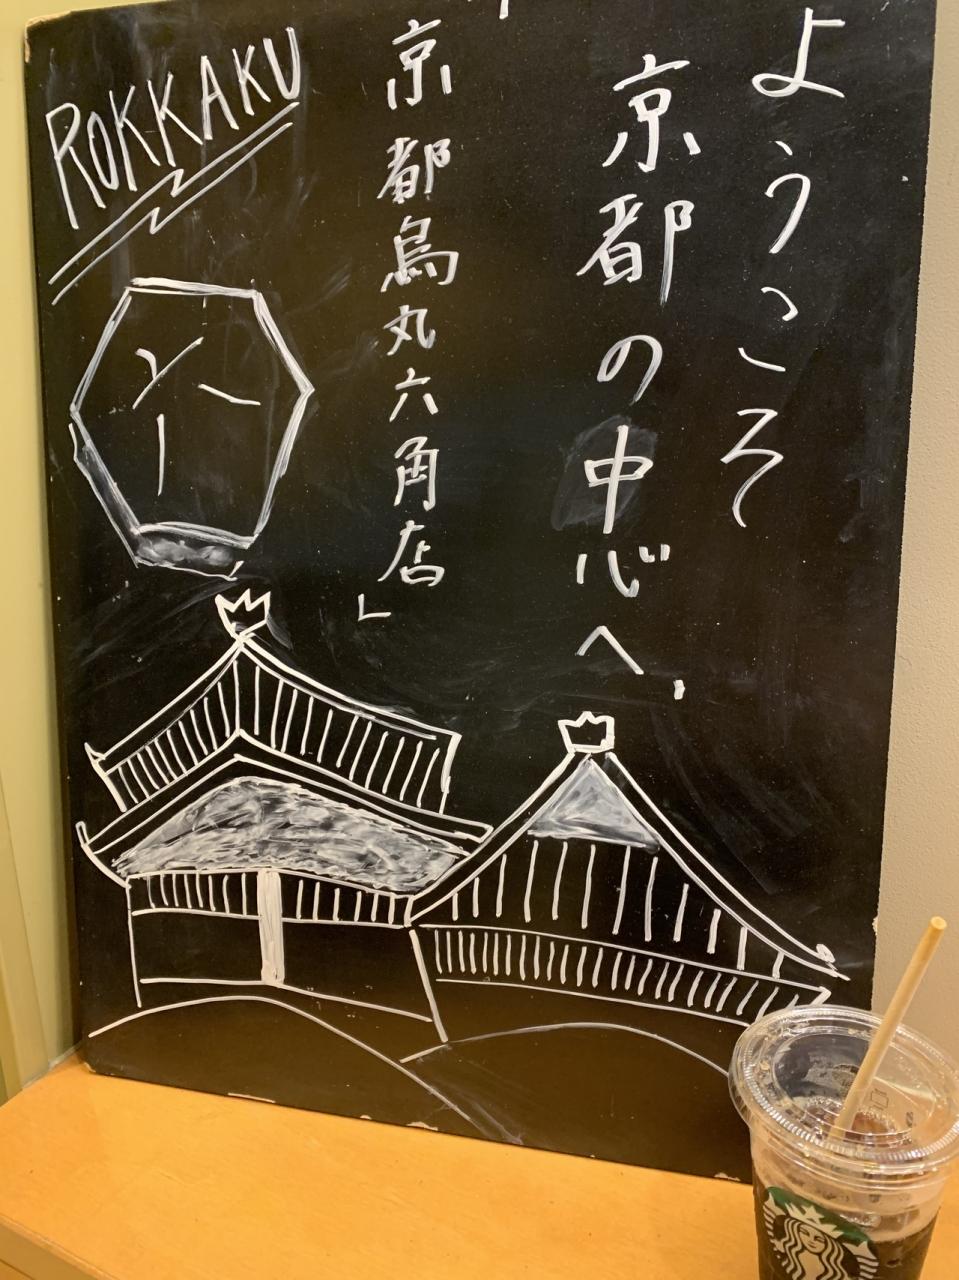 ようこそ
京都の中心へ。
京都烏丸六角店」
ROKKAKU